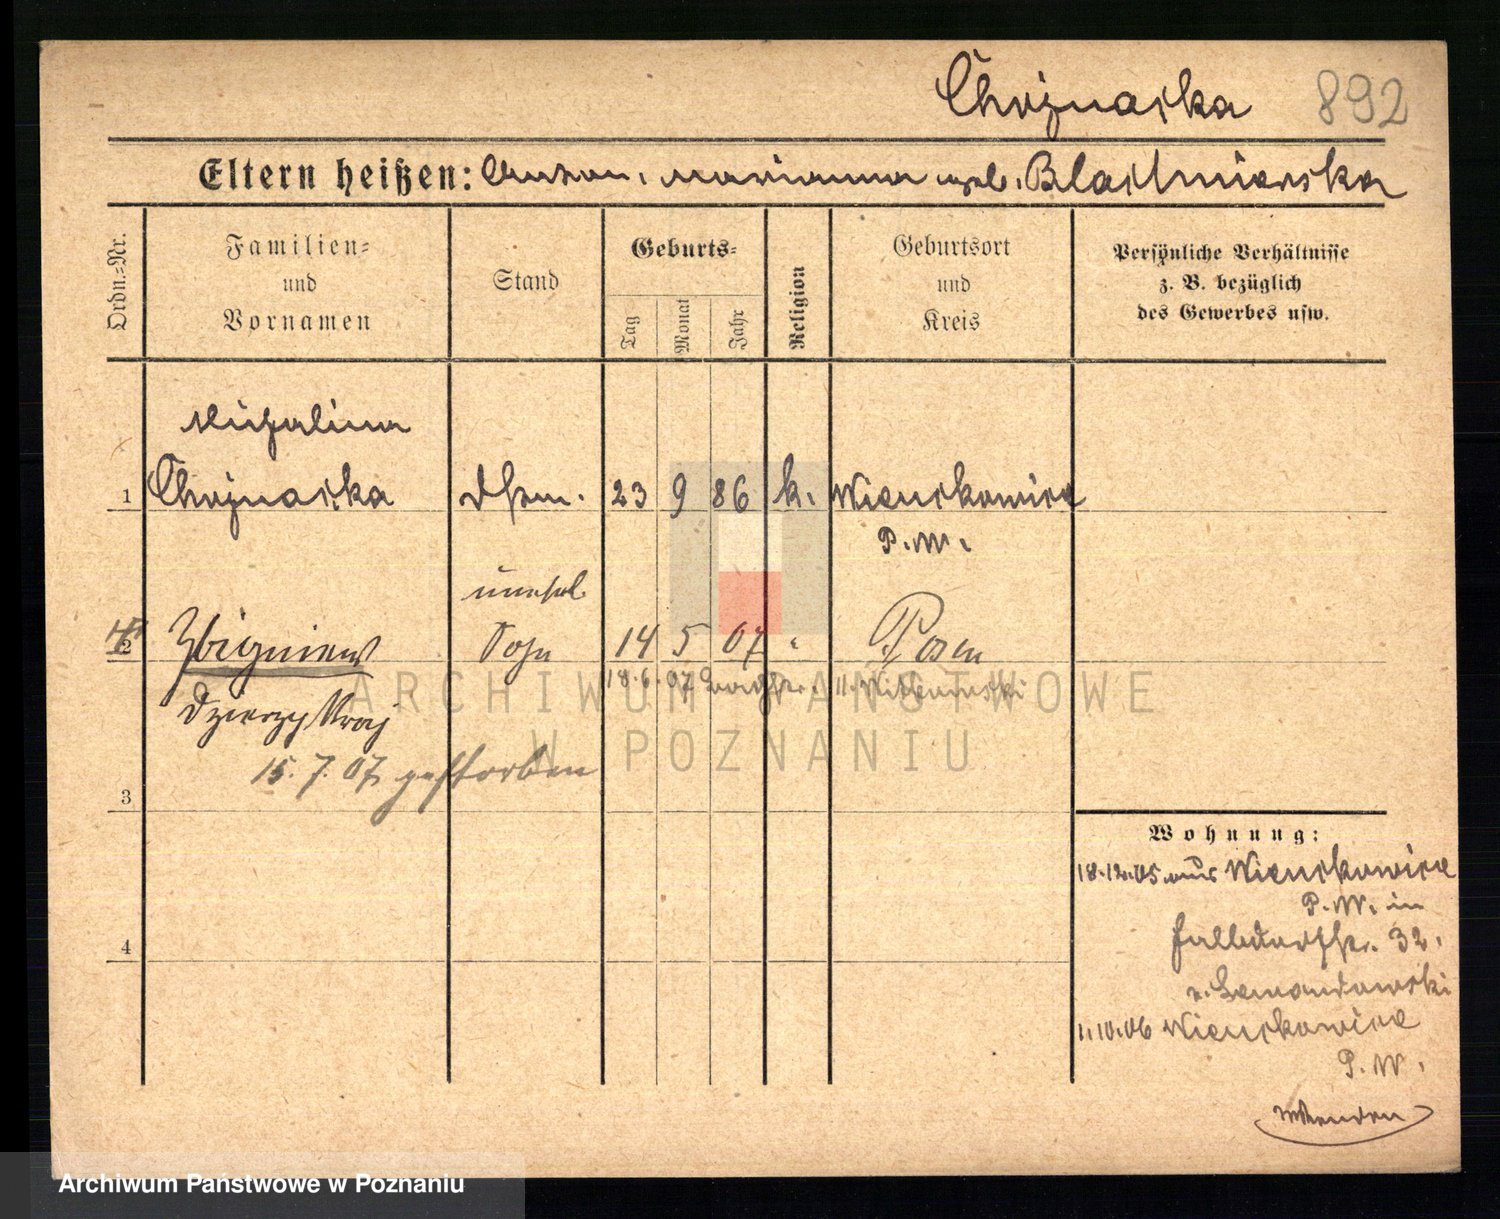 Chojnacka 892
Eltern heißen: Anton, Marianna geb.
Ordn.=Nr.
Familien=
und
Vornamen
Stand
Geburts=
Tag
Monat
Jahr
Religion
Geburtsort
und
Kreis
Persönliche Verhältnisse
z. B. bezüglich
des Gewerbes usw.
Michalina
1 Chojnacka 23 9 86 k. Wienckowice
P. W.
unehel.
2 Zbigniew Sohn 14 5 07 " Posen
18.6.07
Dzierzykraj
15. 7. 07 gestorben
3
4
Wohnung:
18.12.05 aus Wienckowice
P. W. in
32.
v. Lewandowski
1.10.06 Wienckowice
P. W.
wenden
ARCHIWUM PAŃSTWOWE
W POZNANIU
Archiwum Państwowe w Poznaniu